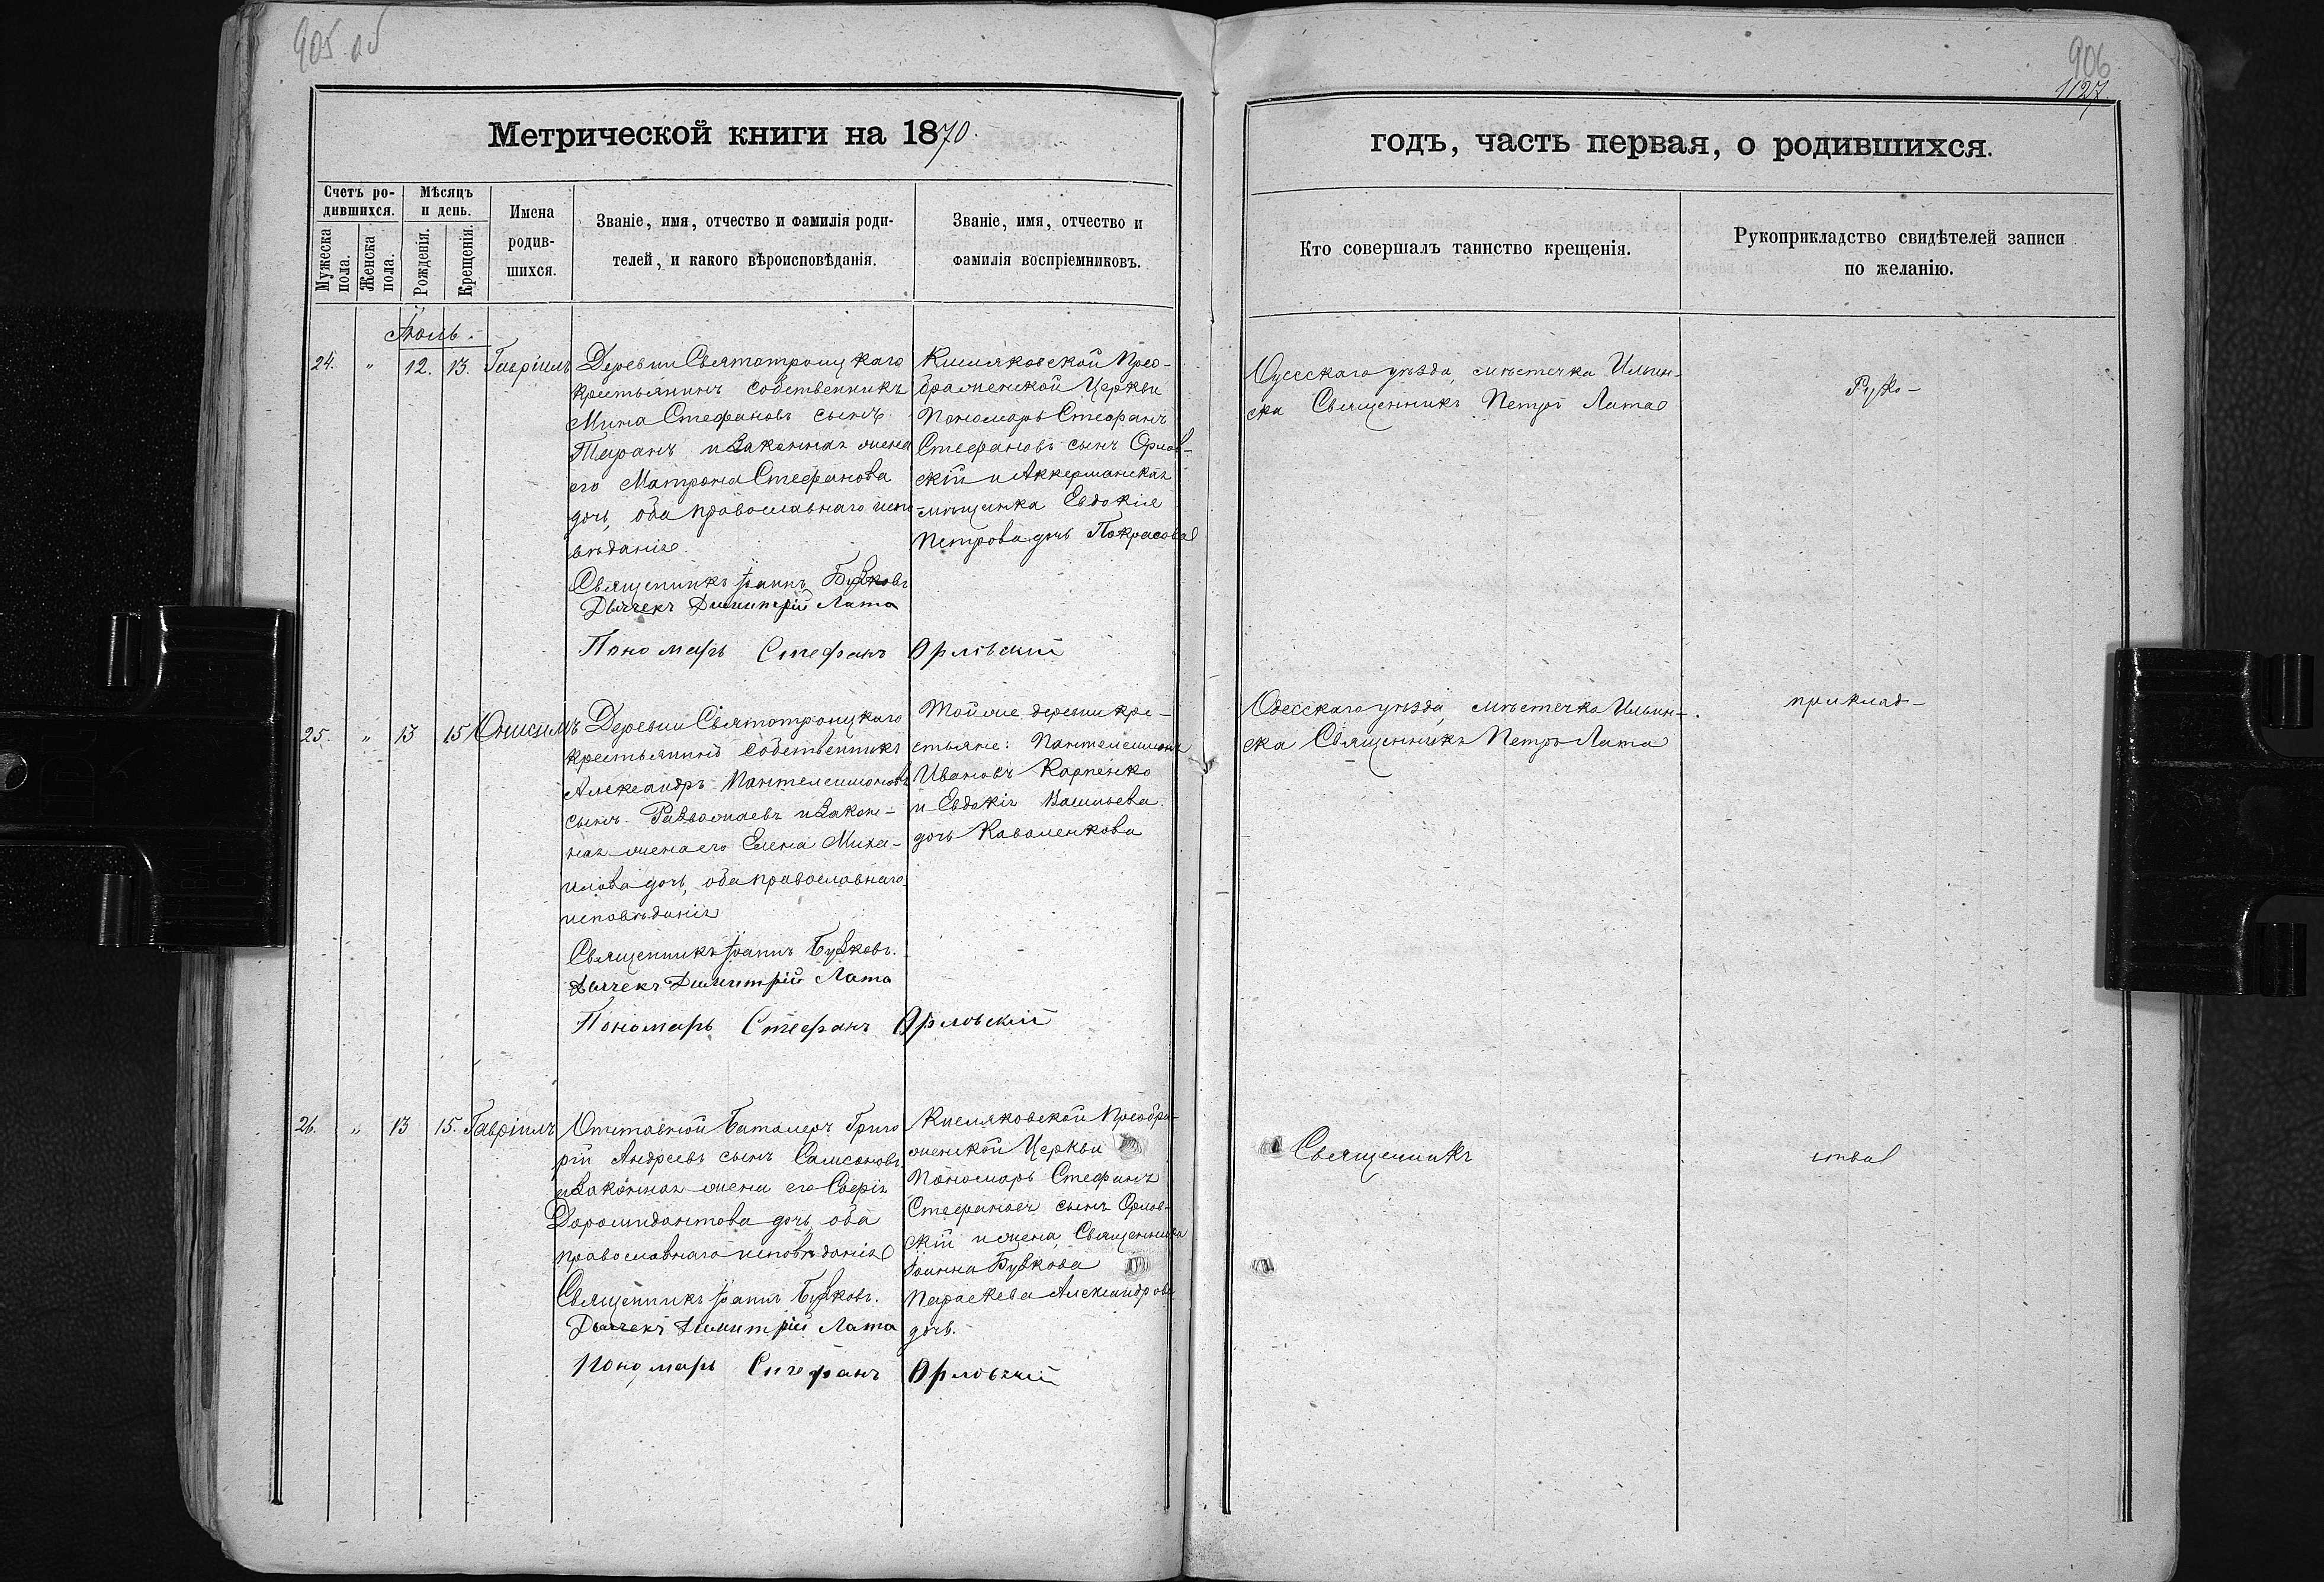 905 об
Метрической книги на 1870.
Счетъ ро-
дившихся.
Мѣсяцъ
и день.
Мужеска
пола.
Женска
пола.
Рожденія.
Крещенія.
Имена
родив-
шихся.
Званіе, имя, отчество и фамилія роди-
телей, и какого вѣроисповѣданія.
Званіе, имя, отчество и
фамилія воспріемниковъ.
Іюль.
24. " 12. 13. Гавріилъ
Деревни Святотроицкаго
крестьянинъ собственникъ
Мина Стефановъ сынъ
Таранъ и законная жена
его Матрона Стефанова
дочь, оба православнаго испо
вѣданія
Священникъ Іоаннъ Бузковъ
Дьячекъ Димитрій Лата
Пономарь Стефанъ Орловскій
Кисляковской Прео-
браженской Церкви
Пономарь Стефанъ
Стефановъ сынъ Орлов-
скій и Аккерманская
мѣщанка Евдокія
Петрова дочь Покрасова
25. " 13 15 Онисимъ
Деревни Святотроицкаго
крестьянинъ собственникъ
Александръ Пантелеимоновъ
сынъ и закон-
ная жена его Елена Миха-
илова дочь, оба православнаго
исповѣданія
Священникъ Іоаннъ Бузковъ.
Дьячекъ Димитрій Лата
Пономарь Стефанъ Орловскій
Той же деревни кре-
стьяне: Пантелеимонъ
Ивановъ Карпенко
и Евдокія Васильева
дочь Коваленкова
26. " 13 15. Гавріилъ
Отставной Баталеръ Григо
рій Андреевъ сынъ Самсоновъ
и законная жена его Софія
Доримидонтова дочь, оба
православнаго исповѣданія
Священникъ Іоаннъ Бузковъ.
Дьячекъ Димитрій Лата
Пономарь Стефанъ Орловскій
Кисляковской Преобра-
женской Церкви
Пономарь Стефанъ
Стефановъ сынъ Орлов-
скій и жена Священника
Іоанна Бузкова
Параскева Александрова
дочь.
906
1127.
годъ, часть первая, о родившихся.
Кто совершалъ таинство крещенія.
Рукоприкладство свидѣтелей записи
по желанію.
Одесскаго уѣзда, мѣстечка Ильин-
ска Священникъ Петръ Лата
Руко-
Одесскаго уѣзда, мѣстечка Ильин-
ска Священникъ Петръ Лата
приклад-
Священникъ
ства